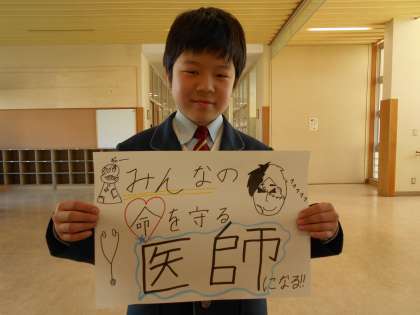 みんなの
命を守る
医師になる!!